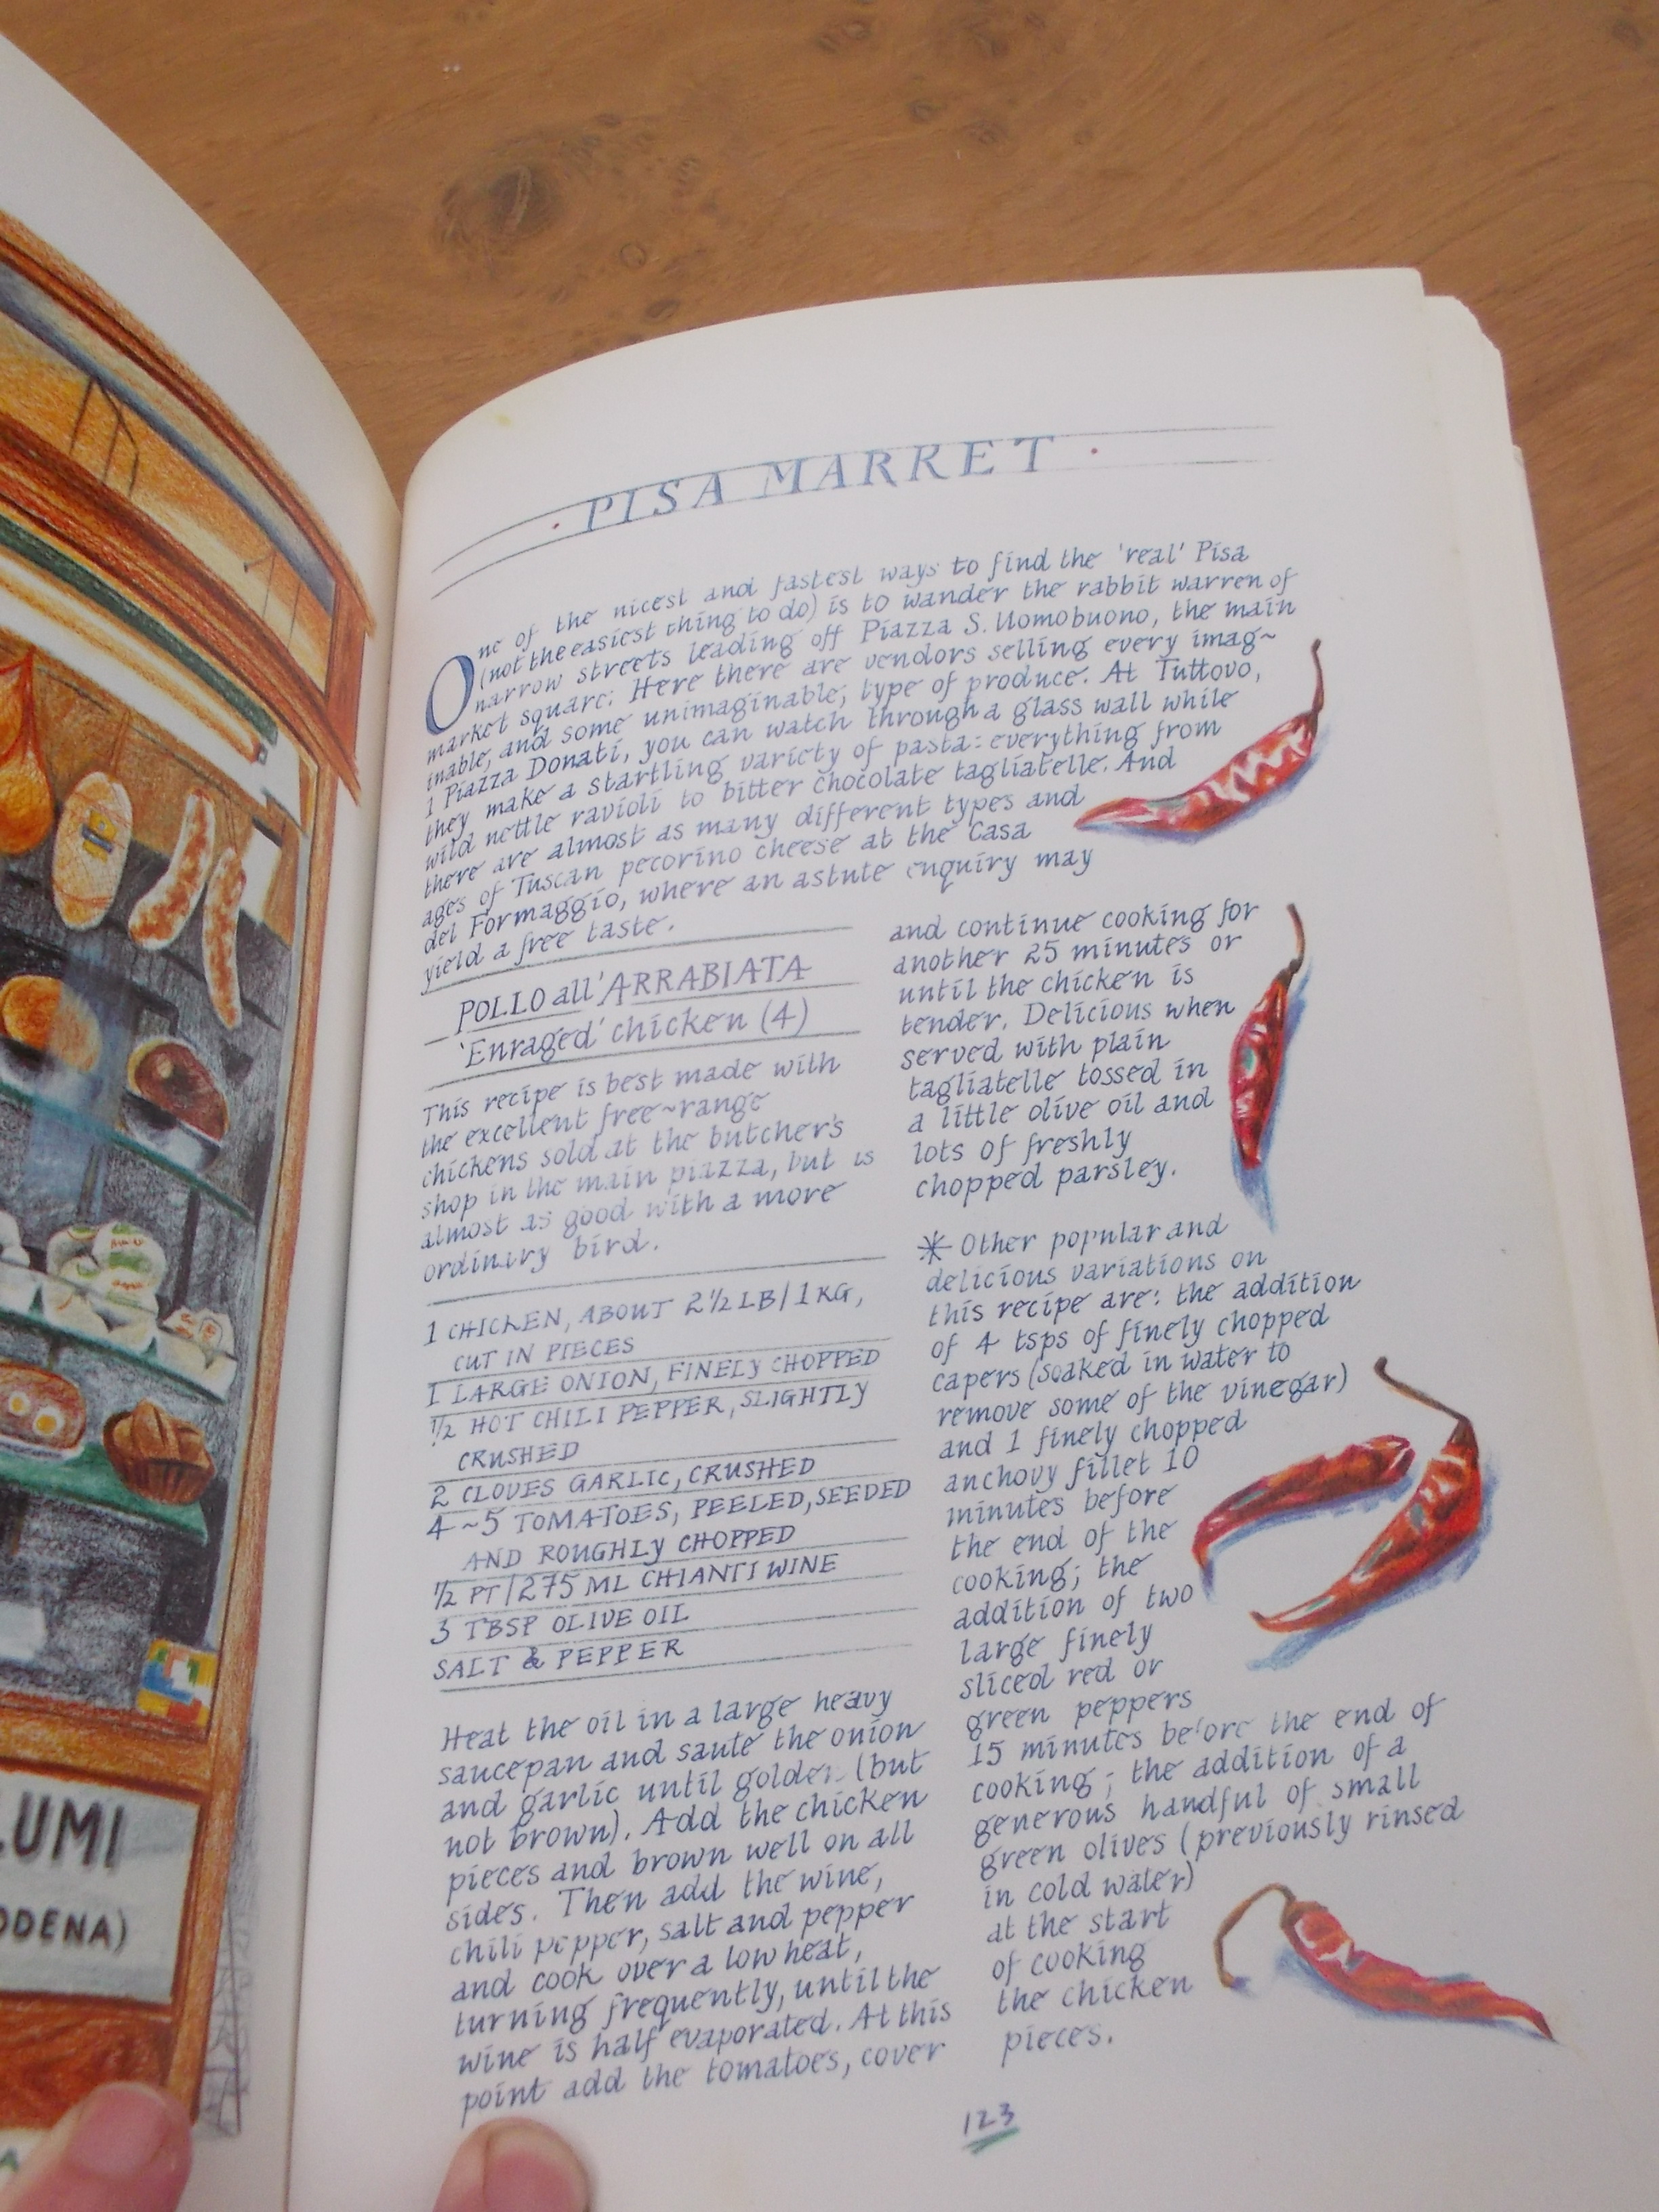 LUMI
ODENA)
· PISA MARKET ·
One of the nicest and fastest ways to find the 'real' Pisa
(not the easiest thing to do) is to wander the rabbit warren of
narrow streets leading off Piazza S. Uomobuono, the main
market square. Here there are vendors selling every imag~
inable, and some unimaginable, type of produce. At Tuttovo,
1 Piazza Donati, you can watch through a glass wall while
they make a startling variety of pasta: everything from
wild nettle ravioli to bitter chocolate tagliatelle. And
there are almost as many different types and
ages of Tuscan pecorino cheese at the Casa
del Formaggio, where an astute enquiry may
yield a free taste.
POLLO all'ARRABIATA
'Enraged' chicken (4)
This recipe is best made with
the excellent free~range
chickens sold at the butcher's
shop in the main piazza, but is
almost as good with a more
ordinary bird.
1 CHICKEN, ABOUT 2½ LB/1 KG,
CUT IN PIECES
1 LARGE ONION, FINELY CHOPPED
½ HOT CHILI PEPPER, SLIGHTLY
CRUSHED
2 CLOVES GARLIC, CRUSHED
4~5 TOMATOES, PEELED, SEEDED
AND ROUGHLY CHOPPED
½ PT/275 ML CHIANTI WINE
3 TBSP OLIVE OIL
SALT & PEPPER
Heat the oil in a large heavy
saucepan and sauté the onion
and garlic until golden (but
not brown). Add the chicken
pieces and brown well on all
sides. Then add the wine,
chili pepper, salt and pepper
and cook over a low heat,
turning frequently, until the
wine is half evaporated. At this
point add the tomatoes, cover
and continue cooking for
another 25 minutes or
until the chicken is
tender. Delicious when
served with plain
tagliatelle tossed in
a little olive oil and
lots of freshly
chopped parsley.
* Other popular and
delicious variations on
this recipe are: the addition
of 4 tsps of finely chopped
capers (soaked in water to
remove some of the vinegar)
and 1 finely chopped
anchovy fillet 10
minutes before
the end of the
cooking; the
addition of two
large finely
sliced red or
green peppers
15 minutes before the end of
cooking; the addition of a
generous handful of small
green olives (previously rinsed
in cold water)
at the start
of cooking
the chicken
pieces.
123